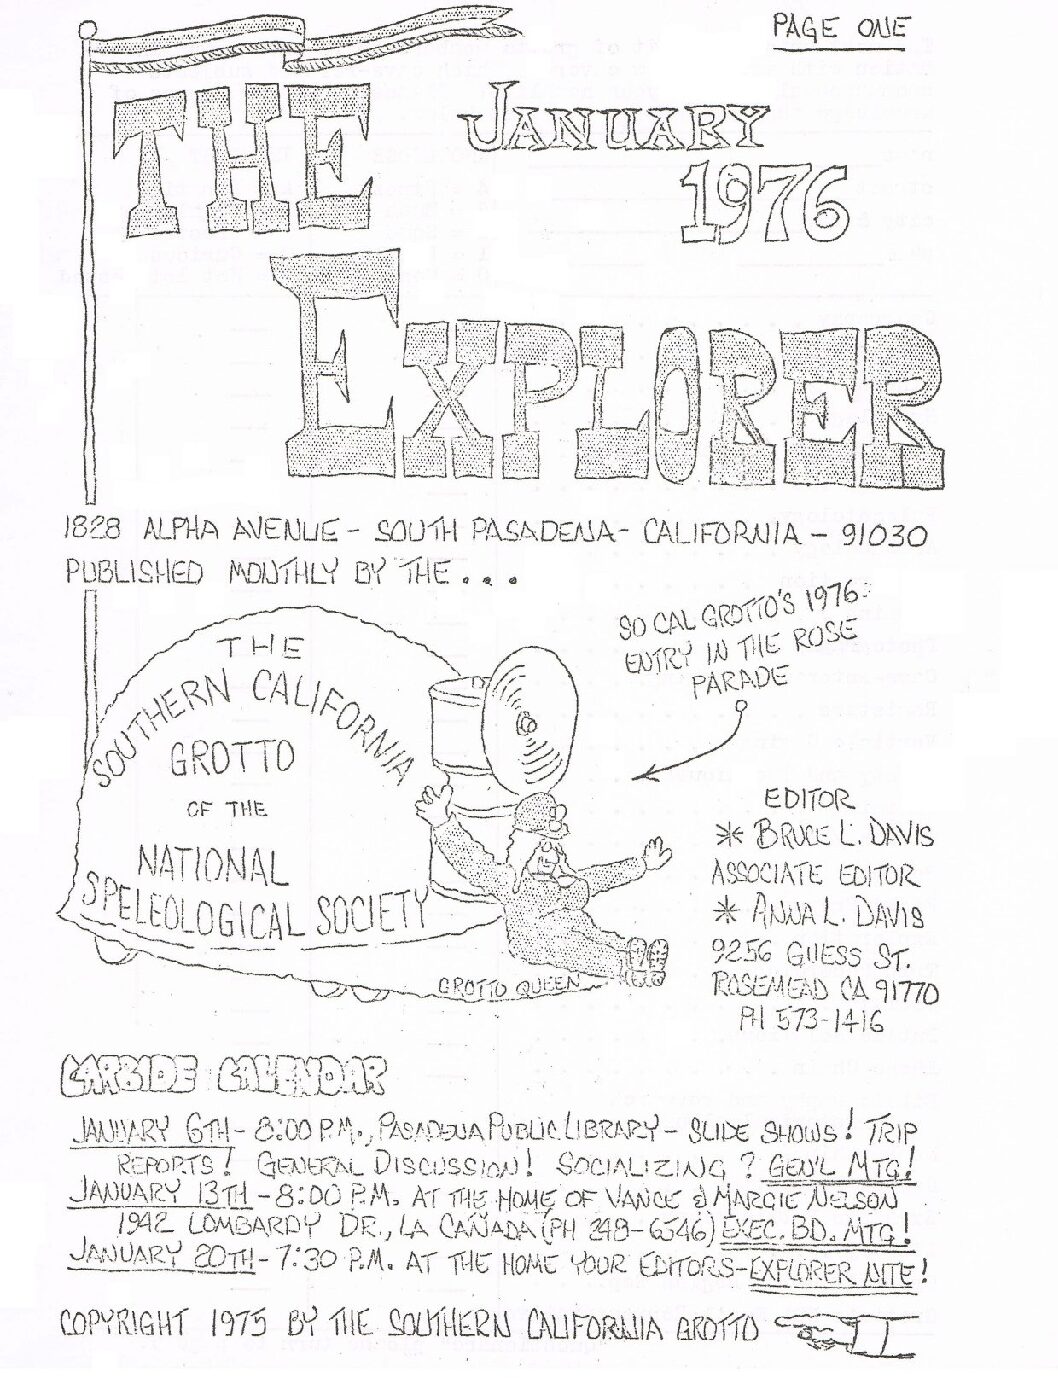 PAGE ONE
THE
JANUARY
1976
EXPLORER
1828 ALPHA AVENUE - SOUTH PASADENA - CALIFORNIA - 91030
PUBLISHED MONTHLY BY THE...
SO CAL GROTTO'S 1976
ENTRY IN THE ROSE
PARADE
THE
SOUTHERN CALIFORNIA
GROTTO
OF THE
NATIONAL
SPELEOLOGICAL SOCIETY
GROTTO QUEEN
EDITOR
* BRUCE L. DAVIS
ASSOCIATE EDITOR
* ANNA L. DAVIS
9256 GUESS ST.
ROSEMEAD CA 91770
PH 573-1416
CARBIDE CALENDAR
JANUARY 6TH - 8:00 P.M., PASADENA PUBLIC LIBRARY - SLIDE SHOWS! TRIP
REPORTS! GENERAL DISCUSSION! SOCIALIZING? GEN'L MTG!
JANUARY 13TH - 8:00 P.M. AT THE HOME OF VANCE & MARGIE NELSON
1942 LOMBARDY DR., LA CAÑADA (PH 248-6546) EXEC. BD. MTG!
JANUARY 20TH - 7:30 P.M. AT THE HOME YOUR EDITORS - EXPLORER NITE!
COPYRIGHT 1975 BY THE SOUTHERN CALIFORNIA GROTTO